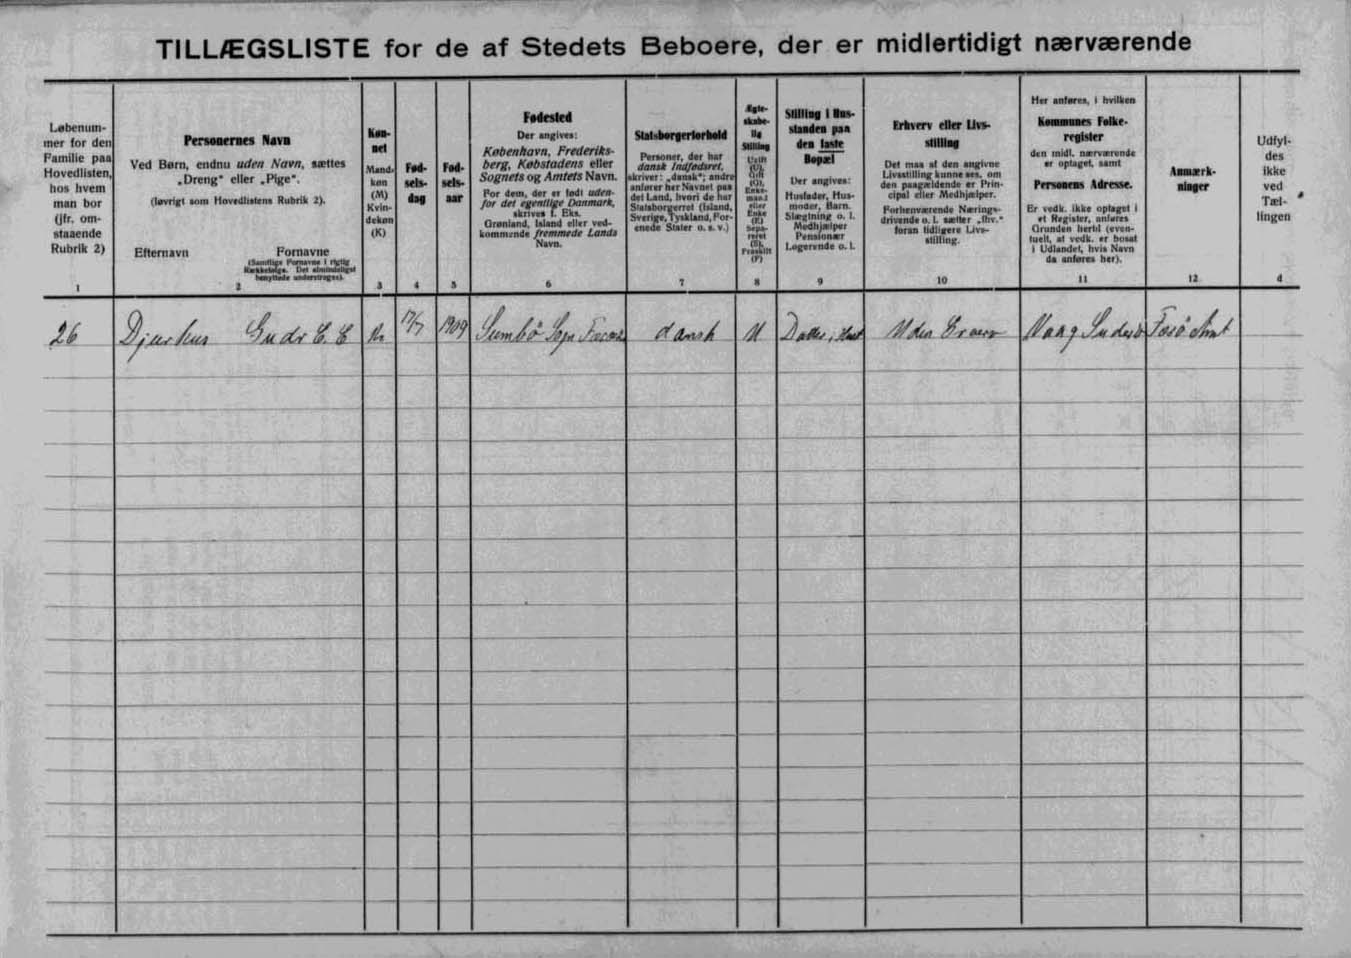 TILLÆGSLISTE for de af Stedets Beboere, der er midlertidigt nærværende
Løbenum-
mer for den
Familie paa
Hovedlisten,
hos hvem
man bor
(jfr. om-
staaende
Rubrik 2)
1
Personernes Navn
Ved Børn, endnu uden Navn, sættes
„Dreng“ eller „Pige“.
(Iøvrigt som Hovedlistens Rubrik 2).
Efternavn Fornavne
(Samtlige Fornavne i rigtig
Rækkefølge. Det almindeligst
benyttede understreges).
2
Køn-
net
Mand-
køn
(M)
Kvin-
dekøn
(K)
3
Fød-
sels-
dag
4
Fød-
sels-
aar
5
Fødested
Der angives:
København, Frederiks-
berg, Købstadens eller
Sognets og Amtets Navn.
For dem, der er født uden-
for det egentlige Danmark,
skrives f. Eks.
Grønland, Island eller ved-
kommende fremmede Lands
Navn.
6
Statsborgerforhold
Personer, der har
dansk Indfødsret,
skriver: „dansk“; andre
anfører her Navnet paa
det Land, hvori de har
Statsborgerret (Island,
Sverige, Tyskland, For-
enede Stater o. s. v.)
7
Ægte-
skabe-
lig
Stilling
Ugift
(U),
Gift
(G),
Enke-
mand
eller
Enke
(E)
Sepa-
reret
(S),
Fraskilt
(F)
8
Stilling i Hus-
standen paa
den faste
Bopæl
Der angives:
Husfader, Hus-
moder, Barn.
Slægtning o. l.
Medhjælper
Pensionær
Logerende o. l.
9
Erhverv eller Livs-
stilling
Det maa af den angivne
Livsstilling kunne ses, om
den paagældende er Prin-
cipal eller Medhjælper.
Forhenværende Nærings-
drivende o. l. sætter „fhv.“
foran tidligere Livs-
stilling.
10
Her anføres, i hvilken
Kommunes Folke-
register
den midl. nærværende
er optaget, samt
Personens Adresse.
Er vedk. ikke optaget i
et Register, anføres
Grunden hertil (even-
tuelt, at vedk. er bosat
i Udlandet, hvis Navn
da anføres her).
11
Anmærk-
ninger
12
Udfyl-
des
ikke
ved
Tæl-
lingen
d
26 Djurhus Gudr E. E 17/7 1909 Sumbø Sogn dansk U Datter, Uden Vaag Suderø Færø Amt